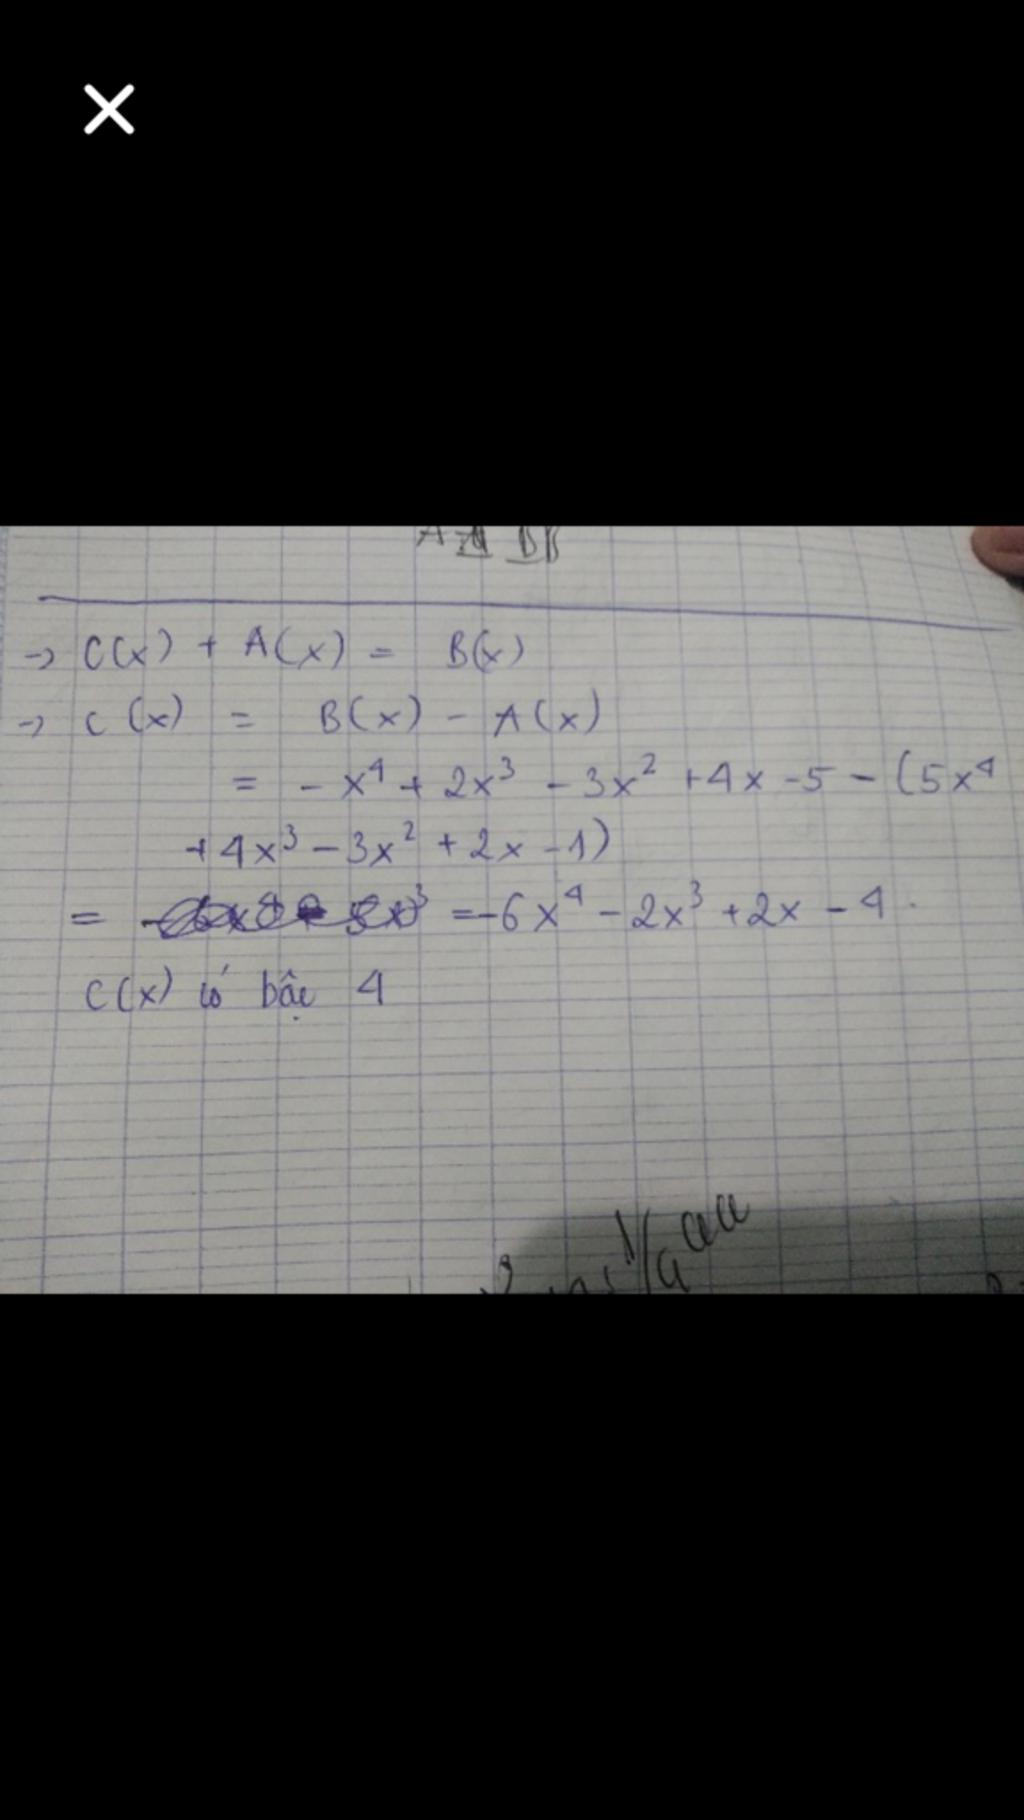 → C(x) + A(x) = B(x)
→ C(x) = B(x) - A(x)
= - x⁴ + 2x³ - 3x² + 4x - 5 - (5x⁴
+ 4x³ - 3x² + 2x - 1)
= = -6x⁴ - 2x³ + 2x - 4.
C(x) có bậc 4